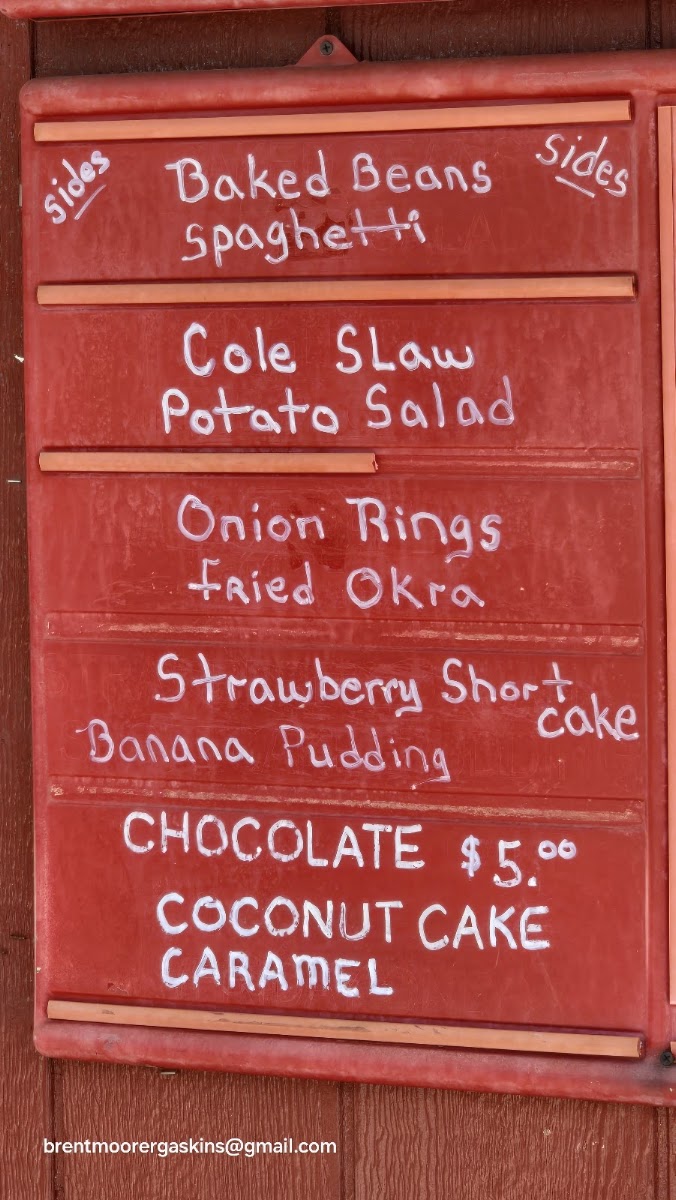 sides
sides
Baked Beans
Spaghetti
Cole SLaw
Potato Salad
Onion Rings
fRied OKra
Strawberry Short
cake
Banana Pudding
CHOCOLATE $5.00
COCONUT CAKE
CARAMEL
brentmoorergaskins@gmail.com